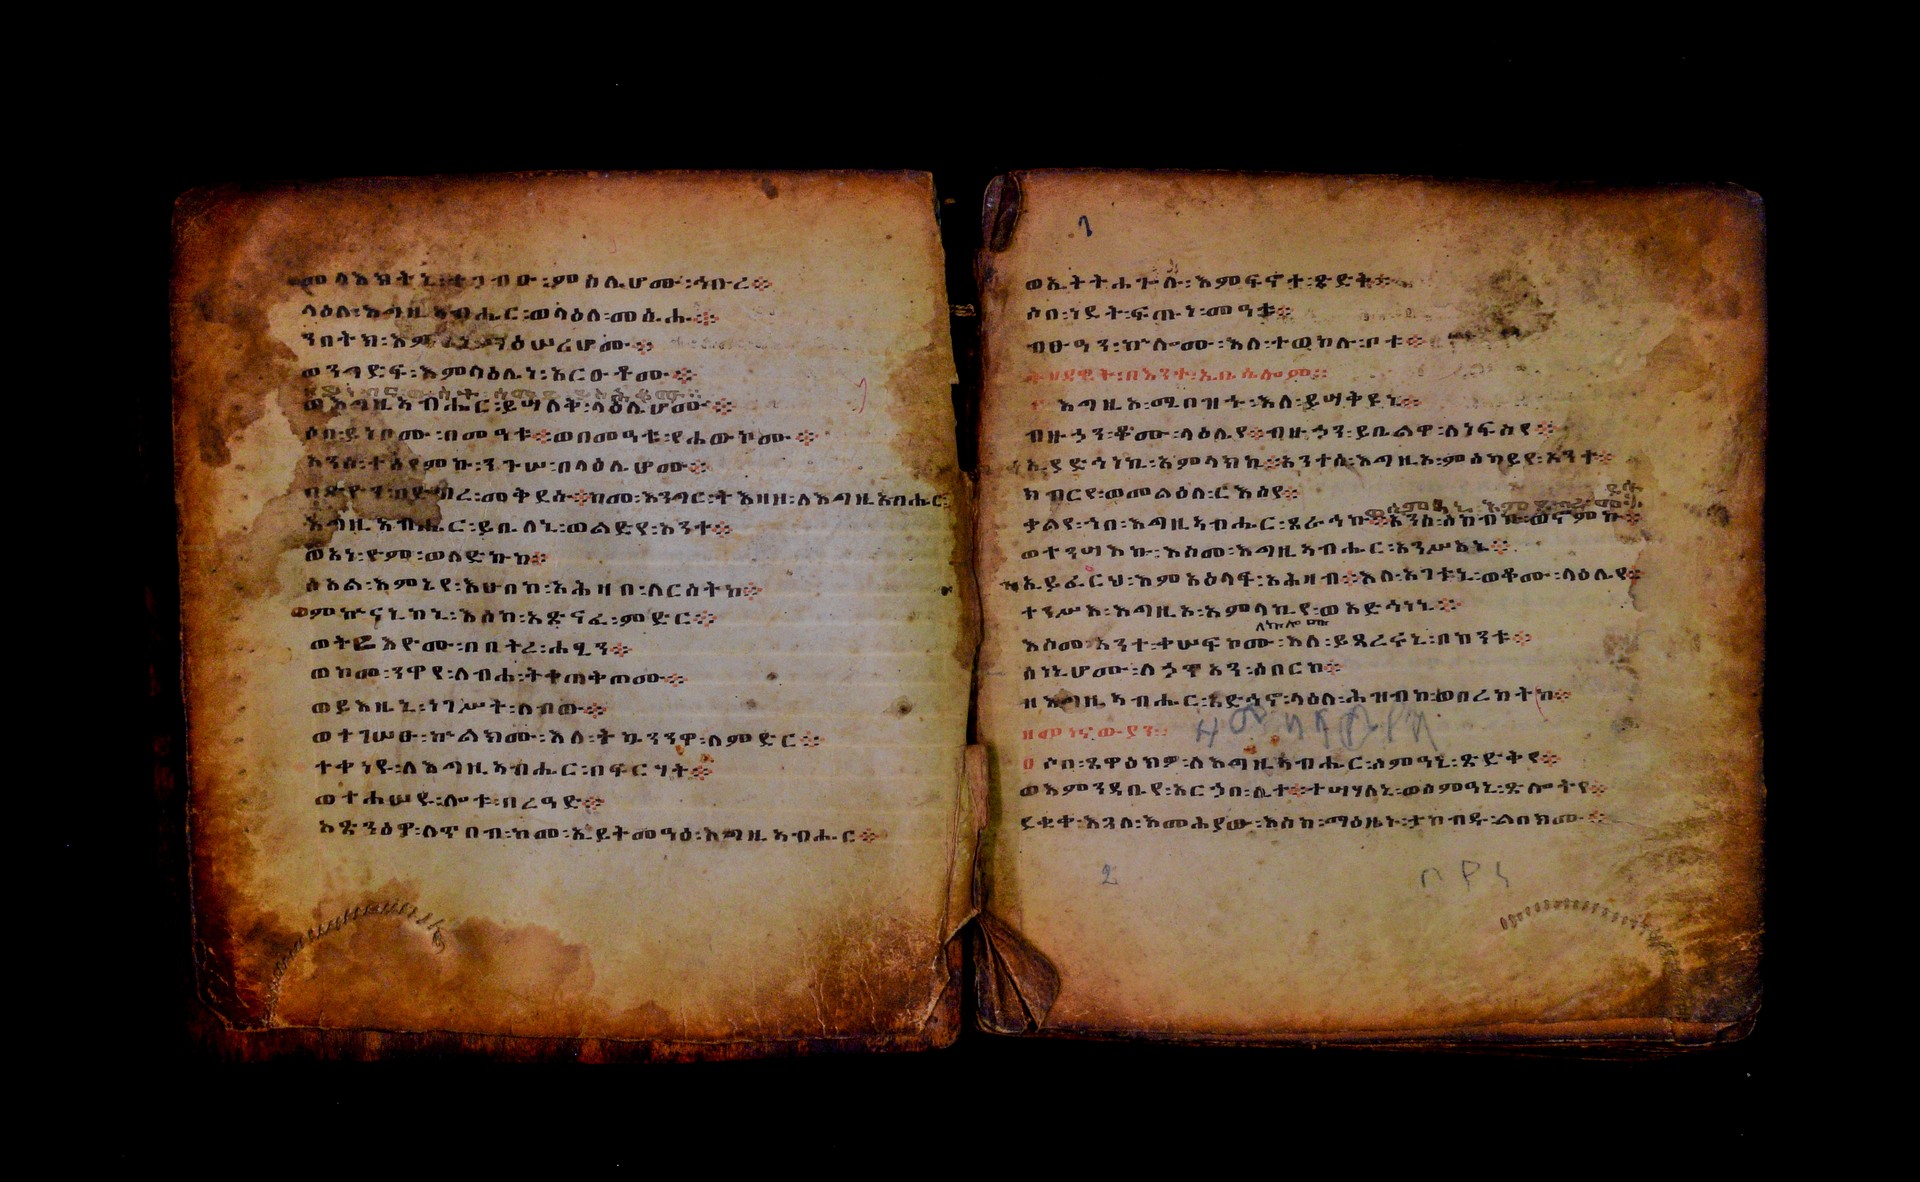 መላእክትኒ፡ተጋብኡ፡ምስሌሆሙ፡ኅቡረ፨
ላዕለ፡እግዚአብሔር፡ወላዕለ፡መሲሑ፨
ንበትክ፡እምኔነ፡ማዕሠሪሆሙ፨
ወንገድፍ፡እምላዕሌነ፡አርዑቶሙ፨
ዘይነብር፡ውስተ፡ሰማይ፡ይስሕቆሙ፨
ወእግዚአብሔር፡ይሣለቅ፡ላዕሌሆሙ፨
ሶበ፡ይነቦሙ፡በመዓቱ፨ወበመዓቱ፡የሐውኮሙ፨
አንሰ፡ተሰየምኩ፡ንጉሠ፡በላዕሌሆሙ፨
በጽዮን፡በደብረ፡መቅደሱ፨ከመ፡እንግር፡ትእዛዘ፡ለእግዚአብሔር፨
እግዚአብሔር፡ይቤለኒ፡ወልድየ፡አንተ፨
ወአነ፡ዮም፡ወለድኩከ፨
ሰአል፡እምኔየ፡እሁበከ፡አሕዛበ፡ለርስትከ፨
ወምኵናኒከኒ፡እስከ፡አጽናፈ፡ምድር፨
ወትሬእዮሙ፡በበትረ፡ሐፂን፨
ወከመ፡ንዋየ፡ለብሐ፡ትቀጠቅጦሙ፨
ወይእዜኒ፡ነገሥት፡ለብው፨
ወተገሠፁ፡ኵልክሙ፡እለ፡ትኴንንዋ፡ለምድር፨
ተቀነዩ፡ለእግዚአብሔር፡በፍርሃት፨
ወተሐሠዩ፡ሎቱ፡በረዓድ፨
አጽንዕዋ፡ለጥበብ፡ከመ፡ኢይትመዓዕ፡እግዚአብሔር፨
ወኢትትሐጐሉ፡እምፍኖተ፡ጽድቅ፨
ሶበ፡ነደት፡ፍጡነ፡መዓቱ፨
ብፁዓን፡ኵሎሙ፡እለ፡ተወከሉ፡ቦቱ፨
ዘዳዊት፡በእንተ፡አቤሴሎም፨
እግዚኦ፡ሚበዝኁ፡እለ፡ይሣቅዩኒ፨
ብዙኃን፡ቆሙ፡ላዕሌየ፨ብዙኃን፡ይቤልዋ፡ለነፍስየ፨
ኢያድኅነኪ፡አምላክኪ፨አንተሰ፡እግዚኦ፡ምስካይየ፡አንተ፨
ክብርየ፡ወመልዕለ፡ርእስየ፨
ወሰምዐኒ፡እምደብረ፡መቅደሱ፨
ቃልየ፡ኀበ፡እግዚአብሔር፡ጸራኅኩ፨አንሰ፡ሰከብኩ፡ወኖምኩ፨
ወተንሣእኩ፡እስመ፡እግዚአብሔር፡አንሥአኒ፨
ኢይፈርህ፡እምአዕላፍ፡አሕዛብ፨እለ፡አገቱኒ፡ወቆሙ፡ላዕሌየ፨
ተንሥእ፡እግዚኦ፡አምላኪየ፡ወአድኅነኒ፨
ለኵሎሙ
እስመ፡አንተ፡ቀሠፍኮሙ፡እለ፡ይጻረሩኒ፡በከንቱ፨
ስነኒሆሙ፡ለኃጥአን፡ሰበርከ፨
ዘእግዚአብሔር፡አድኅኖ፡ላዕለ፡ሕዝብከ፡በረከትከ፨
ዘመነናውያን፨
ሶበ፡ጸዋዕክዎ፡ለእግዚአብሔር፡ሰምዓኒ፡ጽድቅየ፨
ወእምንዳቤየ፡አርኀበ፡ሊተ፨ተሣሃለኒ፡ወስምዓኒ፡ጸሎትየ፨
ደቂቀ፡እጓለ፡እመሕያው፡እስከ፡ማዕዜኑ፡ታከብዱ፡ልበክሙ፨